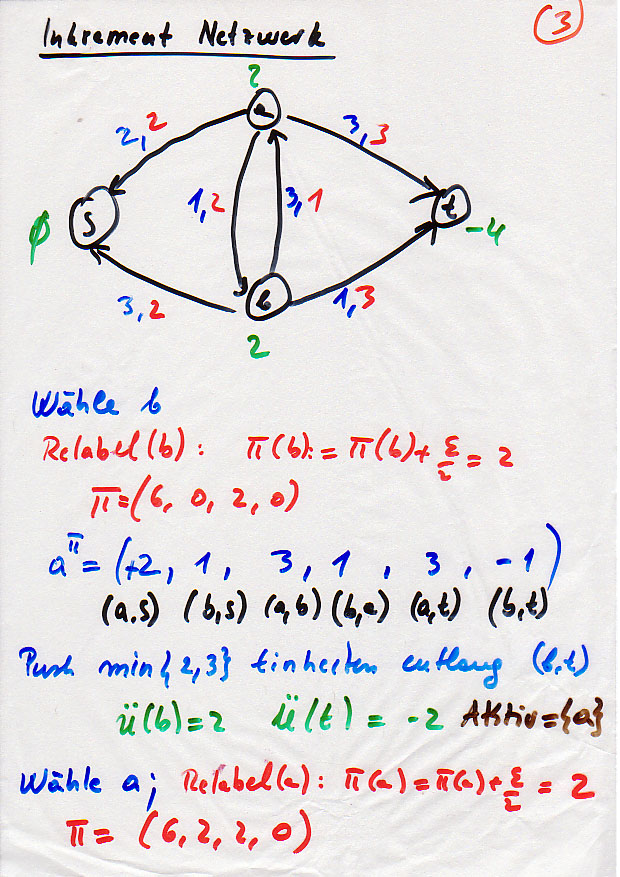 Inkrement Netzwerk
(3)
2
a
2,2
3,3
1,2
3,1
s
t
ϕ
-4
3,2
b
1,3
2
Wähle b
Relabel(b): π(b):=π(b)+ε/2=2
π=(6, 0, 2, 0)
a^π=(+2, 1, 3, 1, 3, -1)
(a,s) (b,s) (a,b) (b,a) (a,t) (b,t)
Push min{2,3} Einheiten entlang (b,t)
ü(b)=2 ü(t) = -2 Aktiv={a}
Wähle a; Relabel(a): π(a)=π(a)+ε/2 = 2
π= (6, 2, 2, 0)